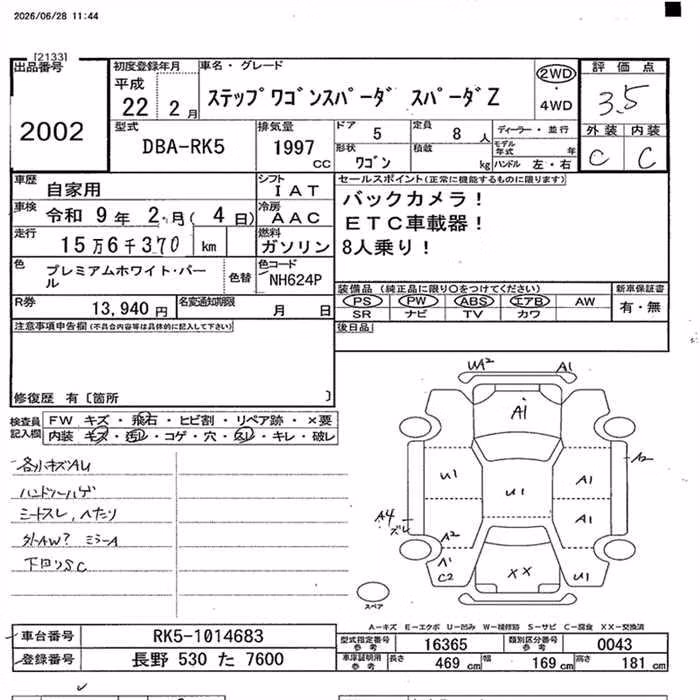 2026/06/28 11:44
[2133]
出品番号
2002
初度登録年月
平成
22 2月
車名・グレード
ステップワゴンスパーダ スパーダZ
2WD
・
4WD
評価点
3.5
外装 内装
C C
型式
DBA-RK5
排気量
1997 CC
ドア 5
定員 8 人
ディーラー・並行
形状 ワゴン
積載 kg
モデル年式 年
ハンドル 左・右
車歴 自家用
シフト IAT
車検 令和 9年 2月( 4日)
冷房 AAC
走行 15万6千370 km
燃料 ガソリン
色 プレミアムホワイト・パール
色替
色コード NH624P
セールスポイント(正常に機能するものに限ります)
バックカメラ!
ETC車載器!
8人乗り!
装備品(純正品に限り○をつけてください)
新車保証書
PS PW ABS エアB AW
SR ナビ TV カワ
有・無
R券 13,940 円
名変通知期限 月 日
後日品
注意事項申告欄(不具合内容等は具体的に記入して下さい)
修復歴 有〔箇所 〕
検査員記入欄
FW キズ・飛石・ヒビ割・リペア跡・×要
内装 キズ・汚レ・コゲ・穴・スレ・キレ・破レ
各小キズAU
ハンドルハゲ
シートスレ,ヘたり
外AW? ミラーA
下回りSC
UA2 A1
A1
A2
U1 U1 A1
A4 ズレ
A1
A2
A1
C2
XX
U1
スペア
A-キズ E-エクボ U-凹み W-補修跡 S-サビ C-腐食 XX-交換済
車台番号 RK5-1014683
登録番号 長野 530 た 7600
型式指定番号 参考 16365
類別区分番号 参考 0043
車庫証明用 参考
長さ 469 cm
幅 169 cm
高さ 181 cm